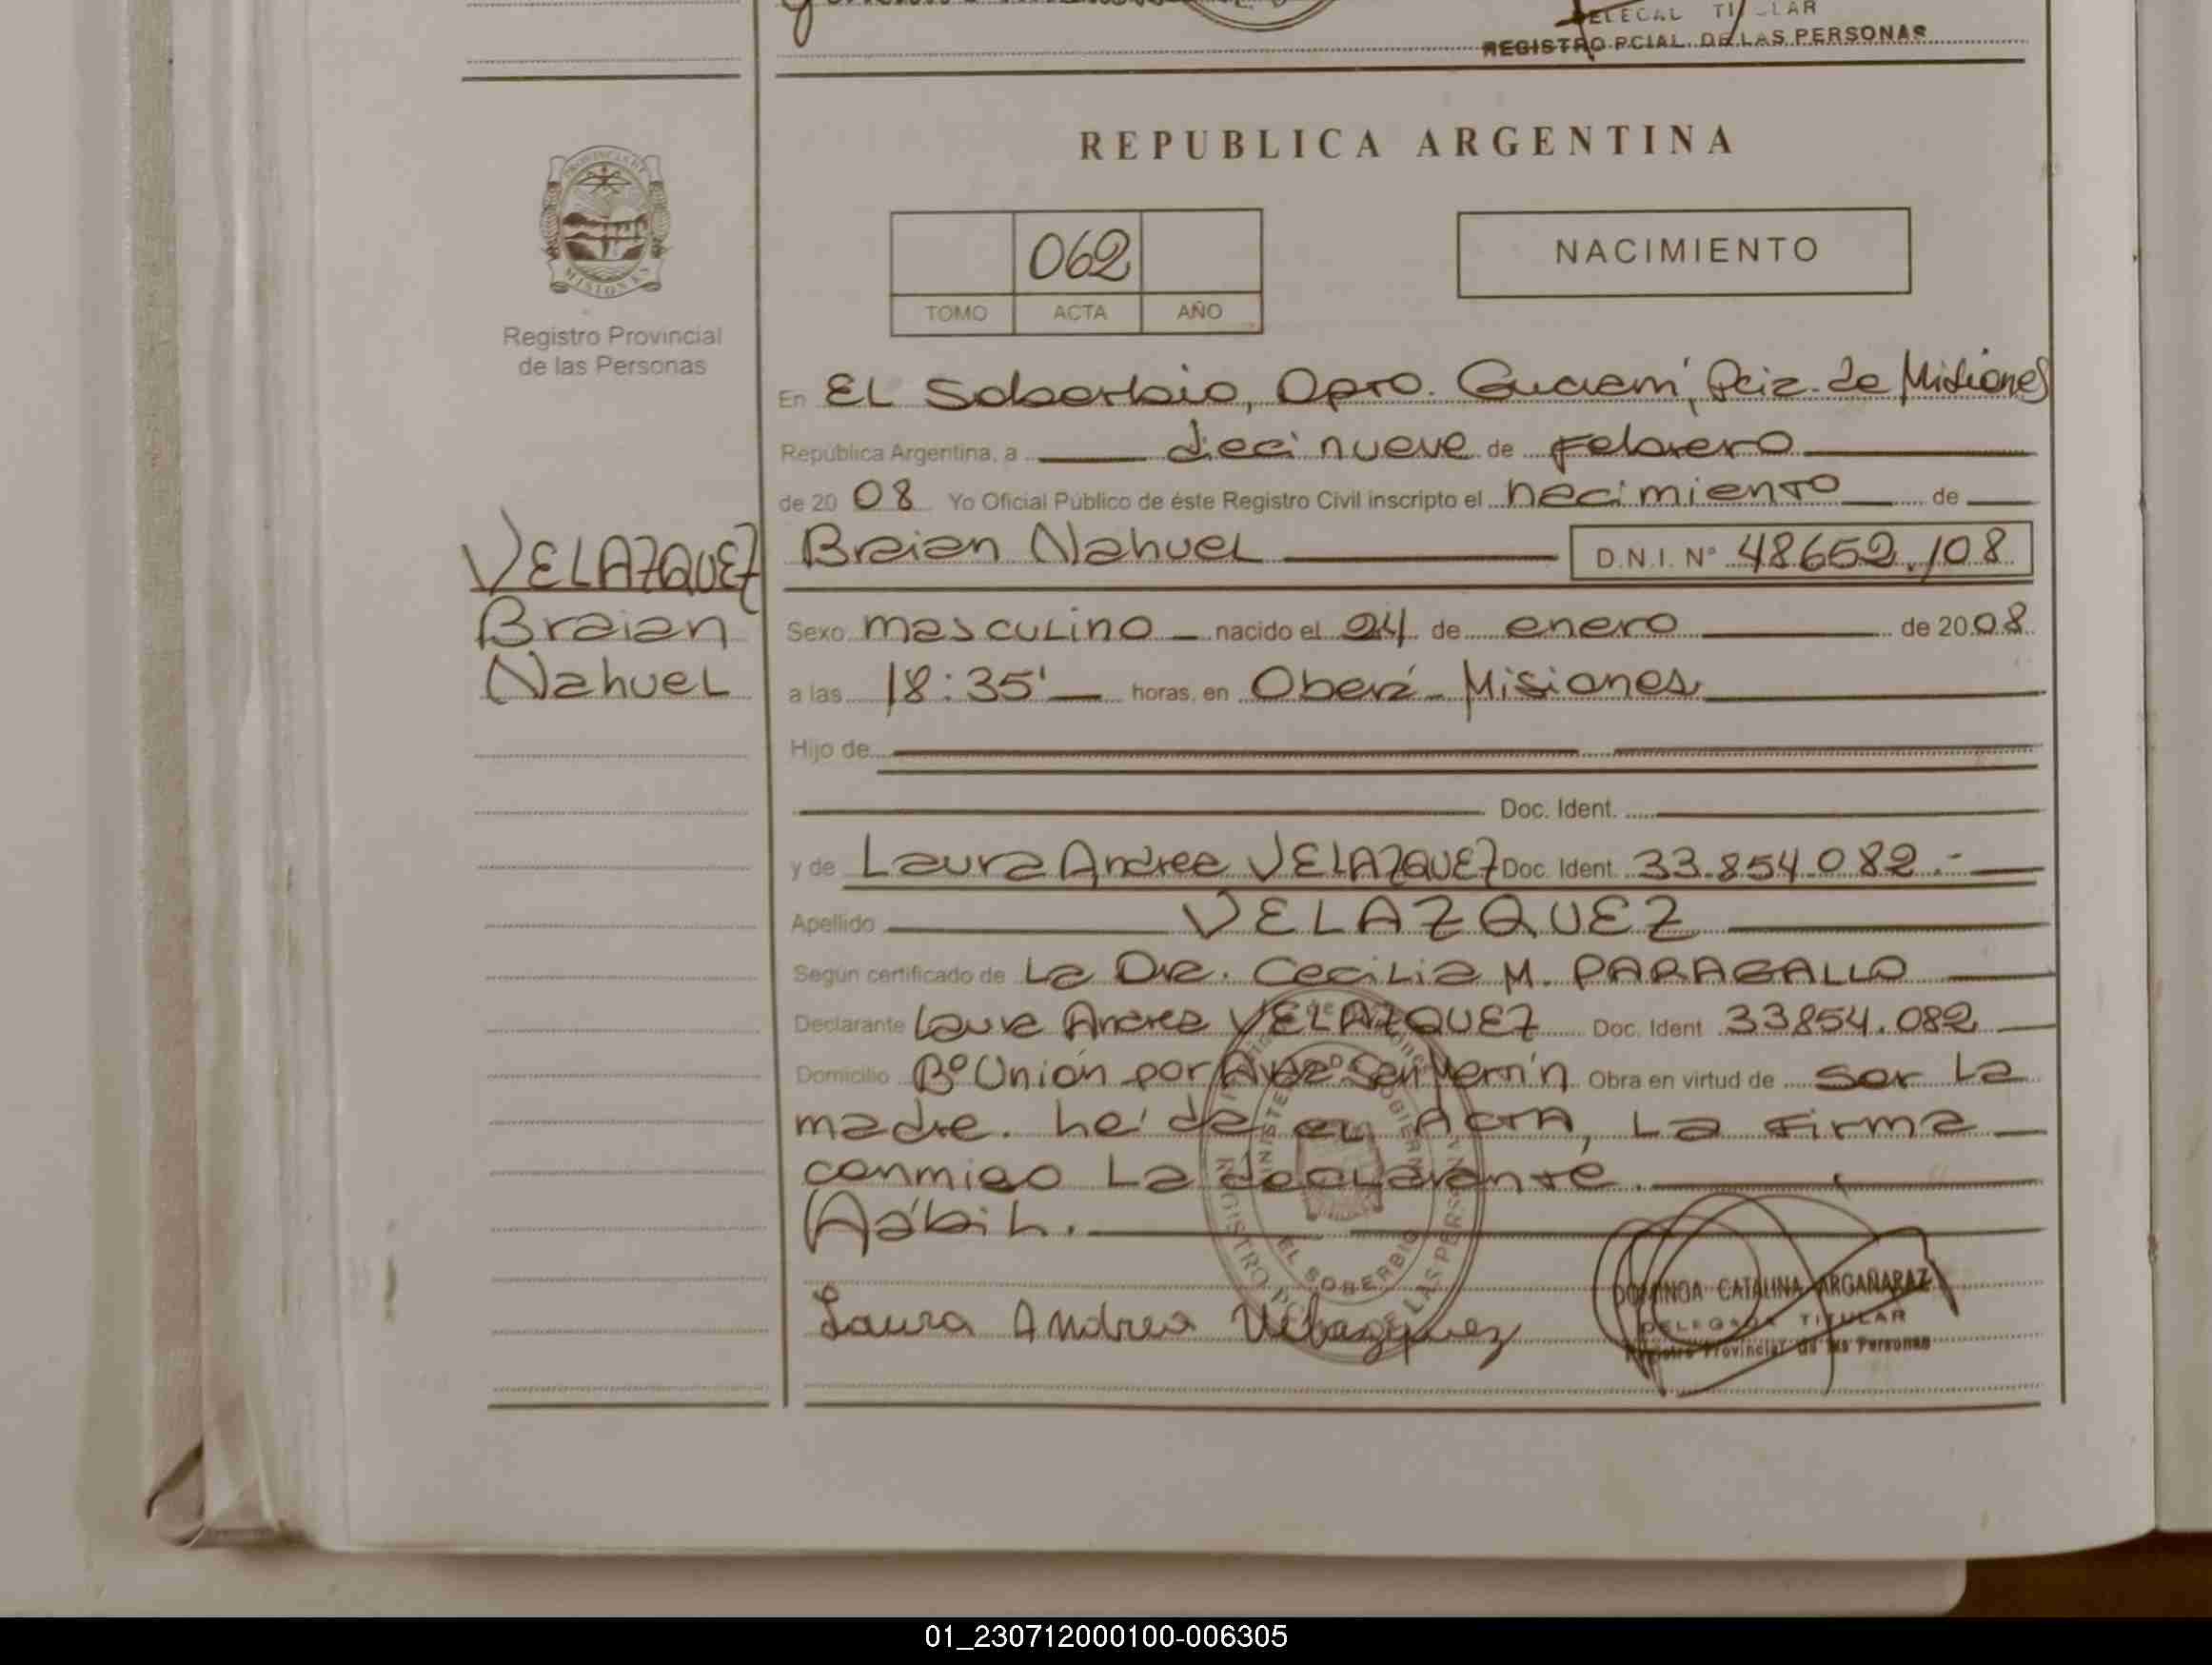 REGISTRO PCIAL. DE LAS PERSONAS
REPUBLICA ARGENTINA
PROVINCIA DE
MISIONES
Registro Provincial
de las Personas
062
TOMO ACTA AÑO
NACIMIENTO
En EL Soberbio, Dpto. Guaraní, Pcia. de Misiones
República Argentina, a dieci nueve de Febrero
de 2008 Yo Oficial Público de éste Registro Civil inscripto el nacimiento de
VELAZQUEZ
Braian
Nahuel
Braian Nahuel D.N.I. Nº 48652.108
Sexo masculino nacido el 24 de enero de 2008
a las 18:35' horas, en Oberá Misiones
Hijo de
Doc. Ident.
y de Laura Andrea VELAZQUEZ Doc. Ident. 33.854.082.-
Apellido VELAZQUEZ
Según certificado de La Dra. Cecilia M. PARAGALLO
Declarante Laura Andrea VELAZQUEZ Doc. Ident. 33854.082
Domicilio Bº Unión por Avda. San Martín Obra en virtud de ser La
madre. Leída el Acta, La Firma
conmigo La declarante.
Hábil.
EL SOBERBIO
Laura Andrea Velazquez
DOMINGA CATALINA ARGAÑARAZ
DELEGADA TITULAR
Registro Provincial de las Personas
01_230712000100-006305